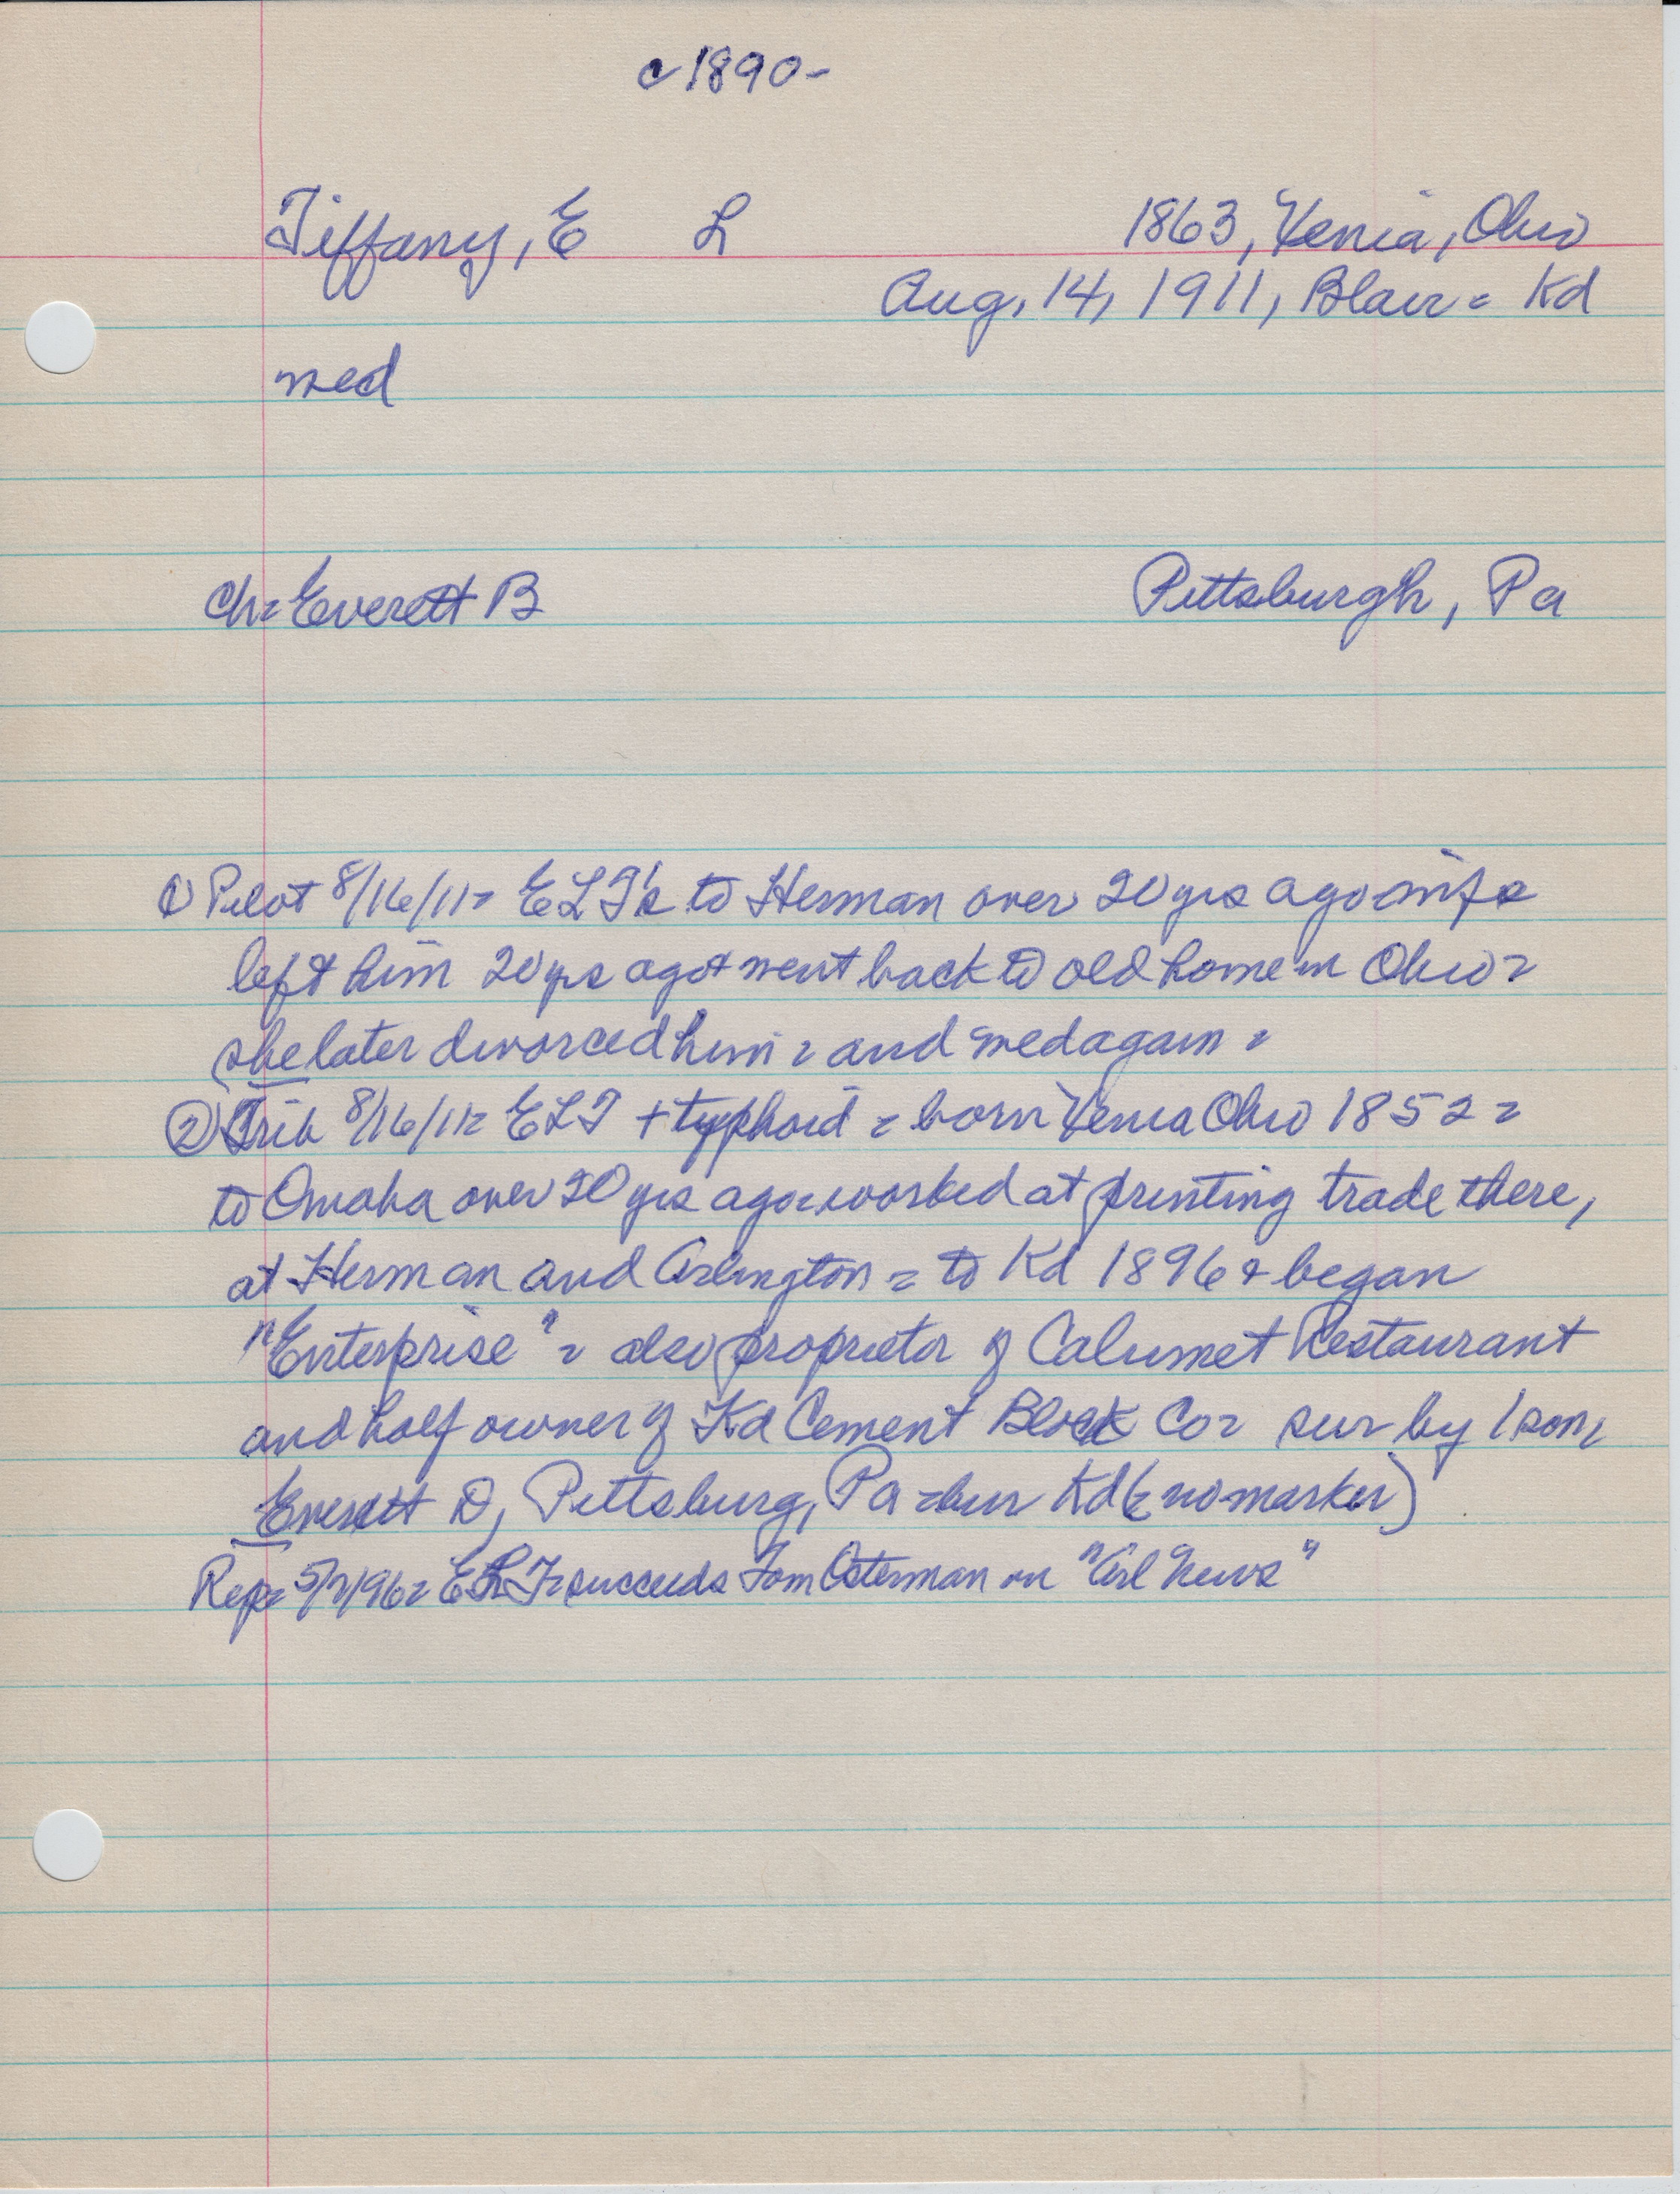 c 1890-
Tiffany, E L 1863, Xenia, Ohio
Aug, 14, 1911, Blair = Kd
med
Ch= Everett B Pittsburgh, Pa
① Pilot 8/16/11= E L T's to Herman over 20 yrs ago= wife
left him 20 yrs ago + went back to old home in Ohio =
she later divorced him = and med again =
② Trib 8/16/11= E L T + typhoid = born Xenia Ohio 1852 =
to Omaha over 20 yrs ago= worked at printing trade there,
at Herman and Arlington = to Kd 1896 + began
"Enterprise" = also proprietor of Calumet Restaurant
and half owner of Kd Cement Block Co = sur by 1 son,
Everett D, Pittsburg, Pa = bur Kd (= no marker)
Rep= 5/7/96= E L T= succeeds Tom Osterman on "Arl News"